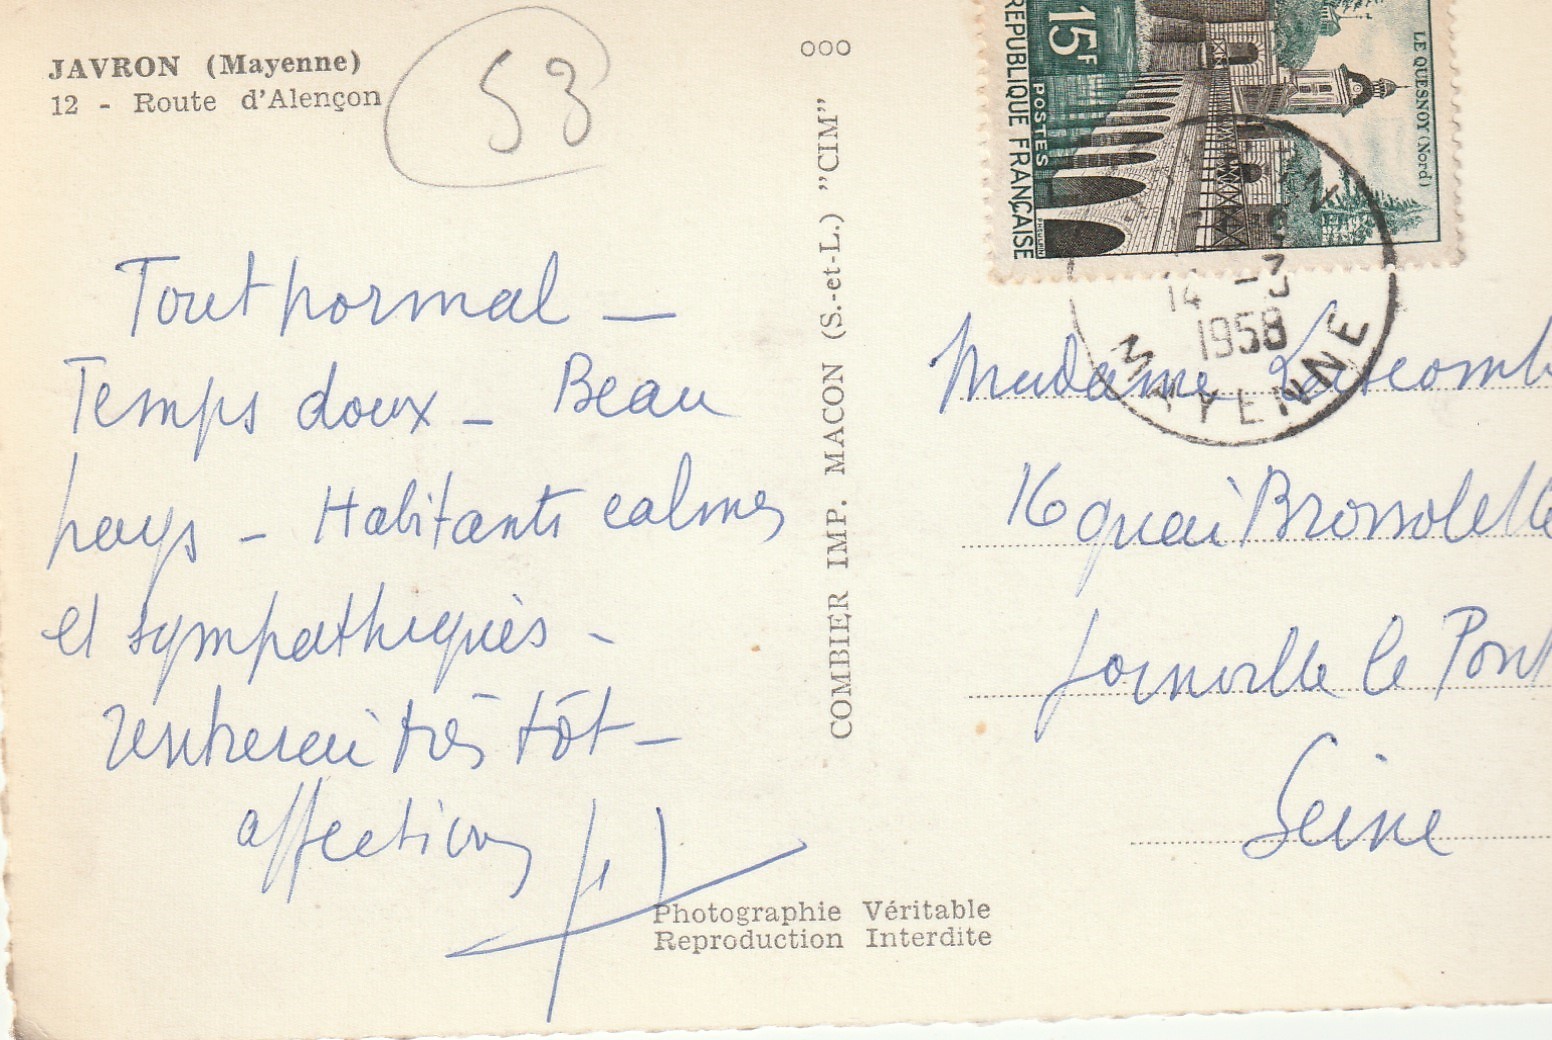 JAVRON (Mayenne)
12 - Route d'Alençon
53
Tout normal —
Temps doux — Beau
pays — Habitants calmes
et sympathiques —
rentrerai très tôt —
affections
ooo
COMBIER IMP. MACON (S.-et-L.) "CIM"
Photographie Véritable
Reproduction Interdite
15F
POSTES
REPUBLIQUE FRANÇAISE
LE QUESNOY (Nord)
14 -3
1958
MAYENNE
Madame
16 quai Brossolette
Joinville le Pont
Seine